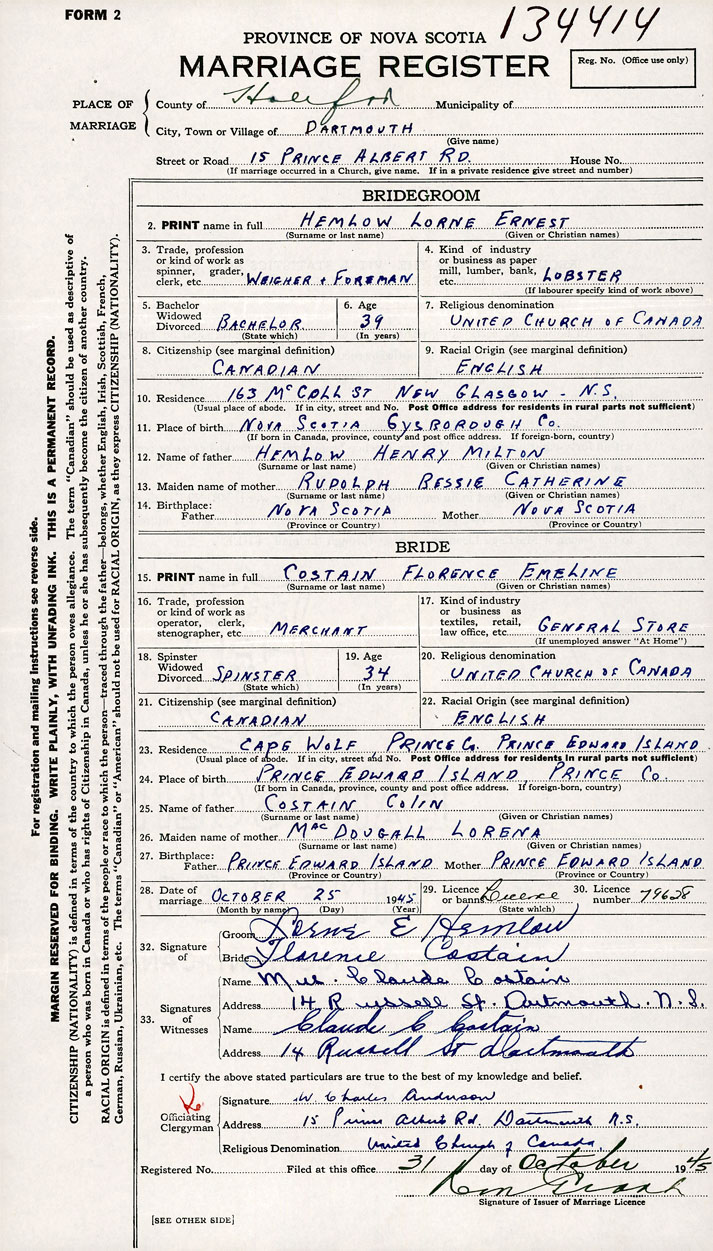 FORM 2
134414
PROVINCE OF NOVA SCOTIA
MARRIAGE REGISTER
Reg. No. (Office use only)
PLACE OF MARRIAGE
County of Halifax Municipality of
City, Town or Village of DARTMOUTH
(Give name)
Street or Road 15 PRINCE ALBERT RD. House No.
(If marriage occurred in a Church, give name. If in a private residence give street and number)
BRIDEGROOM
2. PRINT name in full HEMLOW LORNE ERNEST
(Surname or last name) (Given or Christian names)
3. Trade, profession or kind of work as spinner, grader, clerk, etc. WEIGHER + FOREMAN
4. Kind of industry or business as paper mill, lumber, bank, etc. LOBSTER
(If labourer specify kind of work above)
5. Bachelor Widowed Divorced BACHELOR
(State which)
6. Age 39
(In years)
7. Religious denomination UNITED CHURCH OF CANADA
8. Citizenship (see marginal definition) CANADIAN
9. Racial Origin (see marginal definition) ENGLISH
10. Residence 163 McCOLL ST NEW GLASGOW - N.S.
(Usual place of abode. If in city, street and No. Post Office address for residents in rural parts not sufficient)
11. Place of birth NOVA SCOTIA GYSBOROUGH Co.
(If born in Canada, province, county and post office address. If foreign-born, country)
12. Name of father HEMLOW HENRY MILTON
(Surname or last name) (Given or Christian names)
13. Maiden name of mother RUDOLPH BESSIE CATHERINE
(Surname or last name) (Given or Christian names)
14. Birthplace: Father NOVA SCOTIA Mother NOVA SCOTIA
(Province or Country) (Province or Country)
BRIDE
15. PRINT name in full COSTAIN FLORENCE EMELINE
(Surname or last name) (Given or Christian names)
16. Trade, profession or kind of work as operator, clerk, stenographer, etc. MERCHANT
17. Kind of industry or business as textiles, retail, law office, etc. GENERAL STORE
(If unemployed answer "At Home")
18. Spinster Widowed Divorced SPINSTER
(State which)
19. Age 34
(In years)
20. Religious denomination UNITED CHURCH OF CANADA
21. Citizenship (see marginal definition) CANADIAN
22. Racial Origin (see marginal definition) ENGLISH
23. Residence CAPE WOLF PRINCE Co. PRINCE EDWARD ISLAND
(Usual place of abode. If in city, street and No. Post Office address for residents in rural parts not sufficient)
24. Place of birth PRINCE EDWARD ISLAND, PRINCE Co.
(If born in Canada, province, county and post office address. If foreign-born, country)
25. Name of father COSTAIN COLIN
(Surname or last name) (Given or Christian names)
26. Maiden name of mother MACDOUGALL LORENA
(Surname or last name) (Given or Christian names)
27. Birthplace: Father PRINCE EDWARD ISLAND Mother PRINCE EDWARD ISLAND
(Province or Country) (Province or Country)
28. Date of marriage OCTOBER 25 1945
(Month by name) (Day) (Year)
29. Licence or banns Licence
(State which)
30. Licence number 79628
32. Signature of
Groom Lorne E Hemlow
Bride Florence Costain
33. Signatures of Witnesses
Name Mrs. Claude Costain
Address 14 Russell St. Dartmouth. N.S.
Name Claude C Costain
Address 14 Russell St Dartmouth
I certify the above stated particulars are true to the best of my knowledge and belief.
Officiating Clergyman
Signature W Charles Anderson
Address 15 Prince Albert Rd. Dartmouth N.S.
Religious Denomination United Church of Canada
Registered No. Filed at this office 31 day of October 1945
Signature of Issuer of Marriage Licence
[SEE OTHER SIDE]
For registration and mailing instructions see reverse side.
MARGIN RESERVED FOR BINDING. WRITE PLAINLY, WITH UNFADING INK. THIS IS A PERMANENT RECORD.
CITIZENSHIP (NATIONALITY) is defined in terms of the country to which the person owes allegiance. The term "Canadian" should be used as descriptive of
a person who was born in Canada or who has rights of Citizenship in Canada, unless he or she has subsequently become the citizen of another country.
RACIAL ORIGIN is defined in terms of the people or race to which the person—traced through the father—belongs, whether English, Irish, Scottish, French,
German, Russian, Ukrainian, etc. The terms "Canadian" or "American" should not be used for RACIAL ORIGIN, as they express CITIZENSHIP (NATIONALITY).